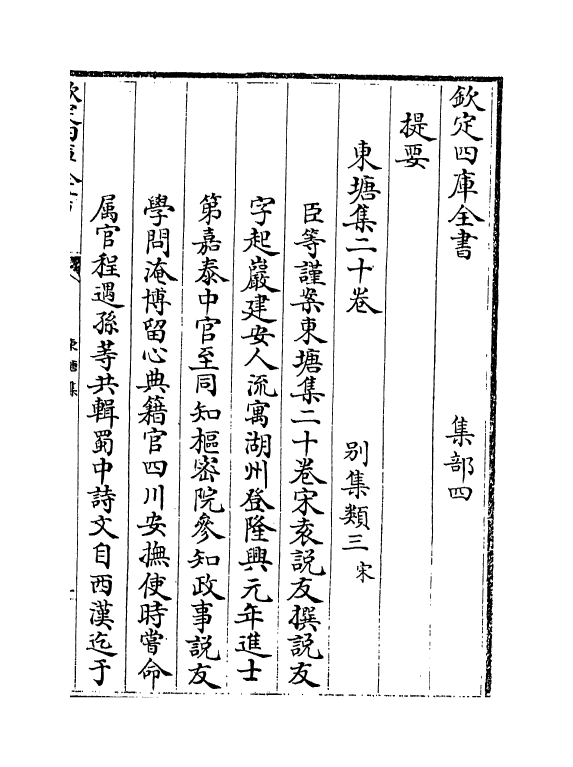 欽定四庫全書　集部四
提要
東塘集二十卷　別集類三宋
臣等謹案東塘集二十卷宋袁説友撰説友
字起巖建安人流寓湖州登隆興元年進士
第嘉泰中官至同知樞密院參知政事説友
學問淹博留心典籍官四川安撫使時嘗命
属官程遇孫等共輯蜀中詩文自西漢迄于
東塘集